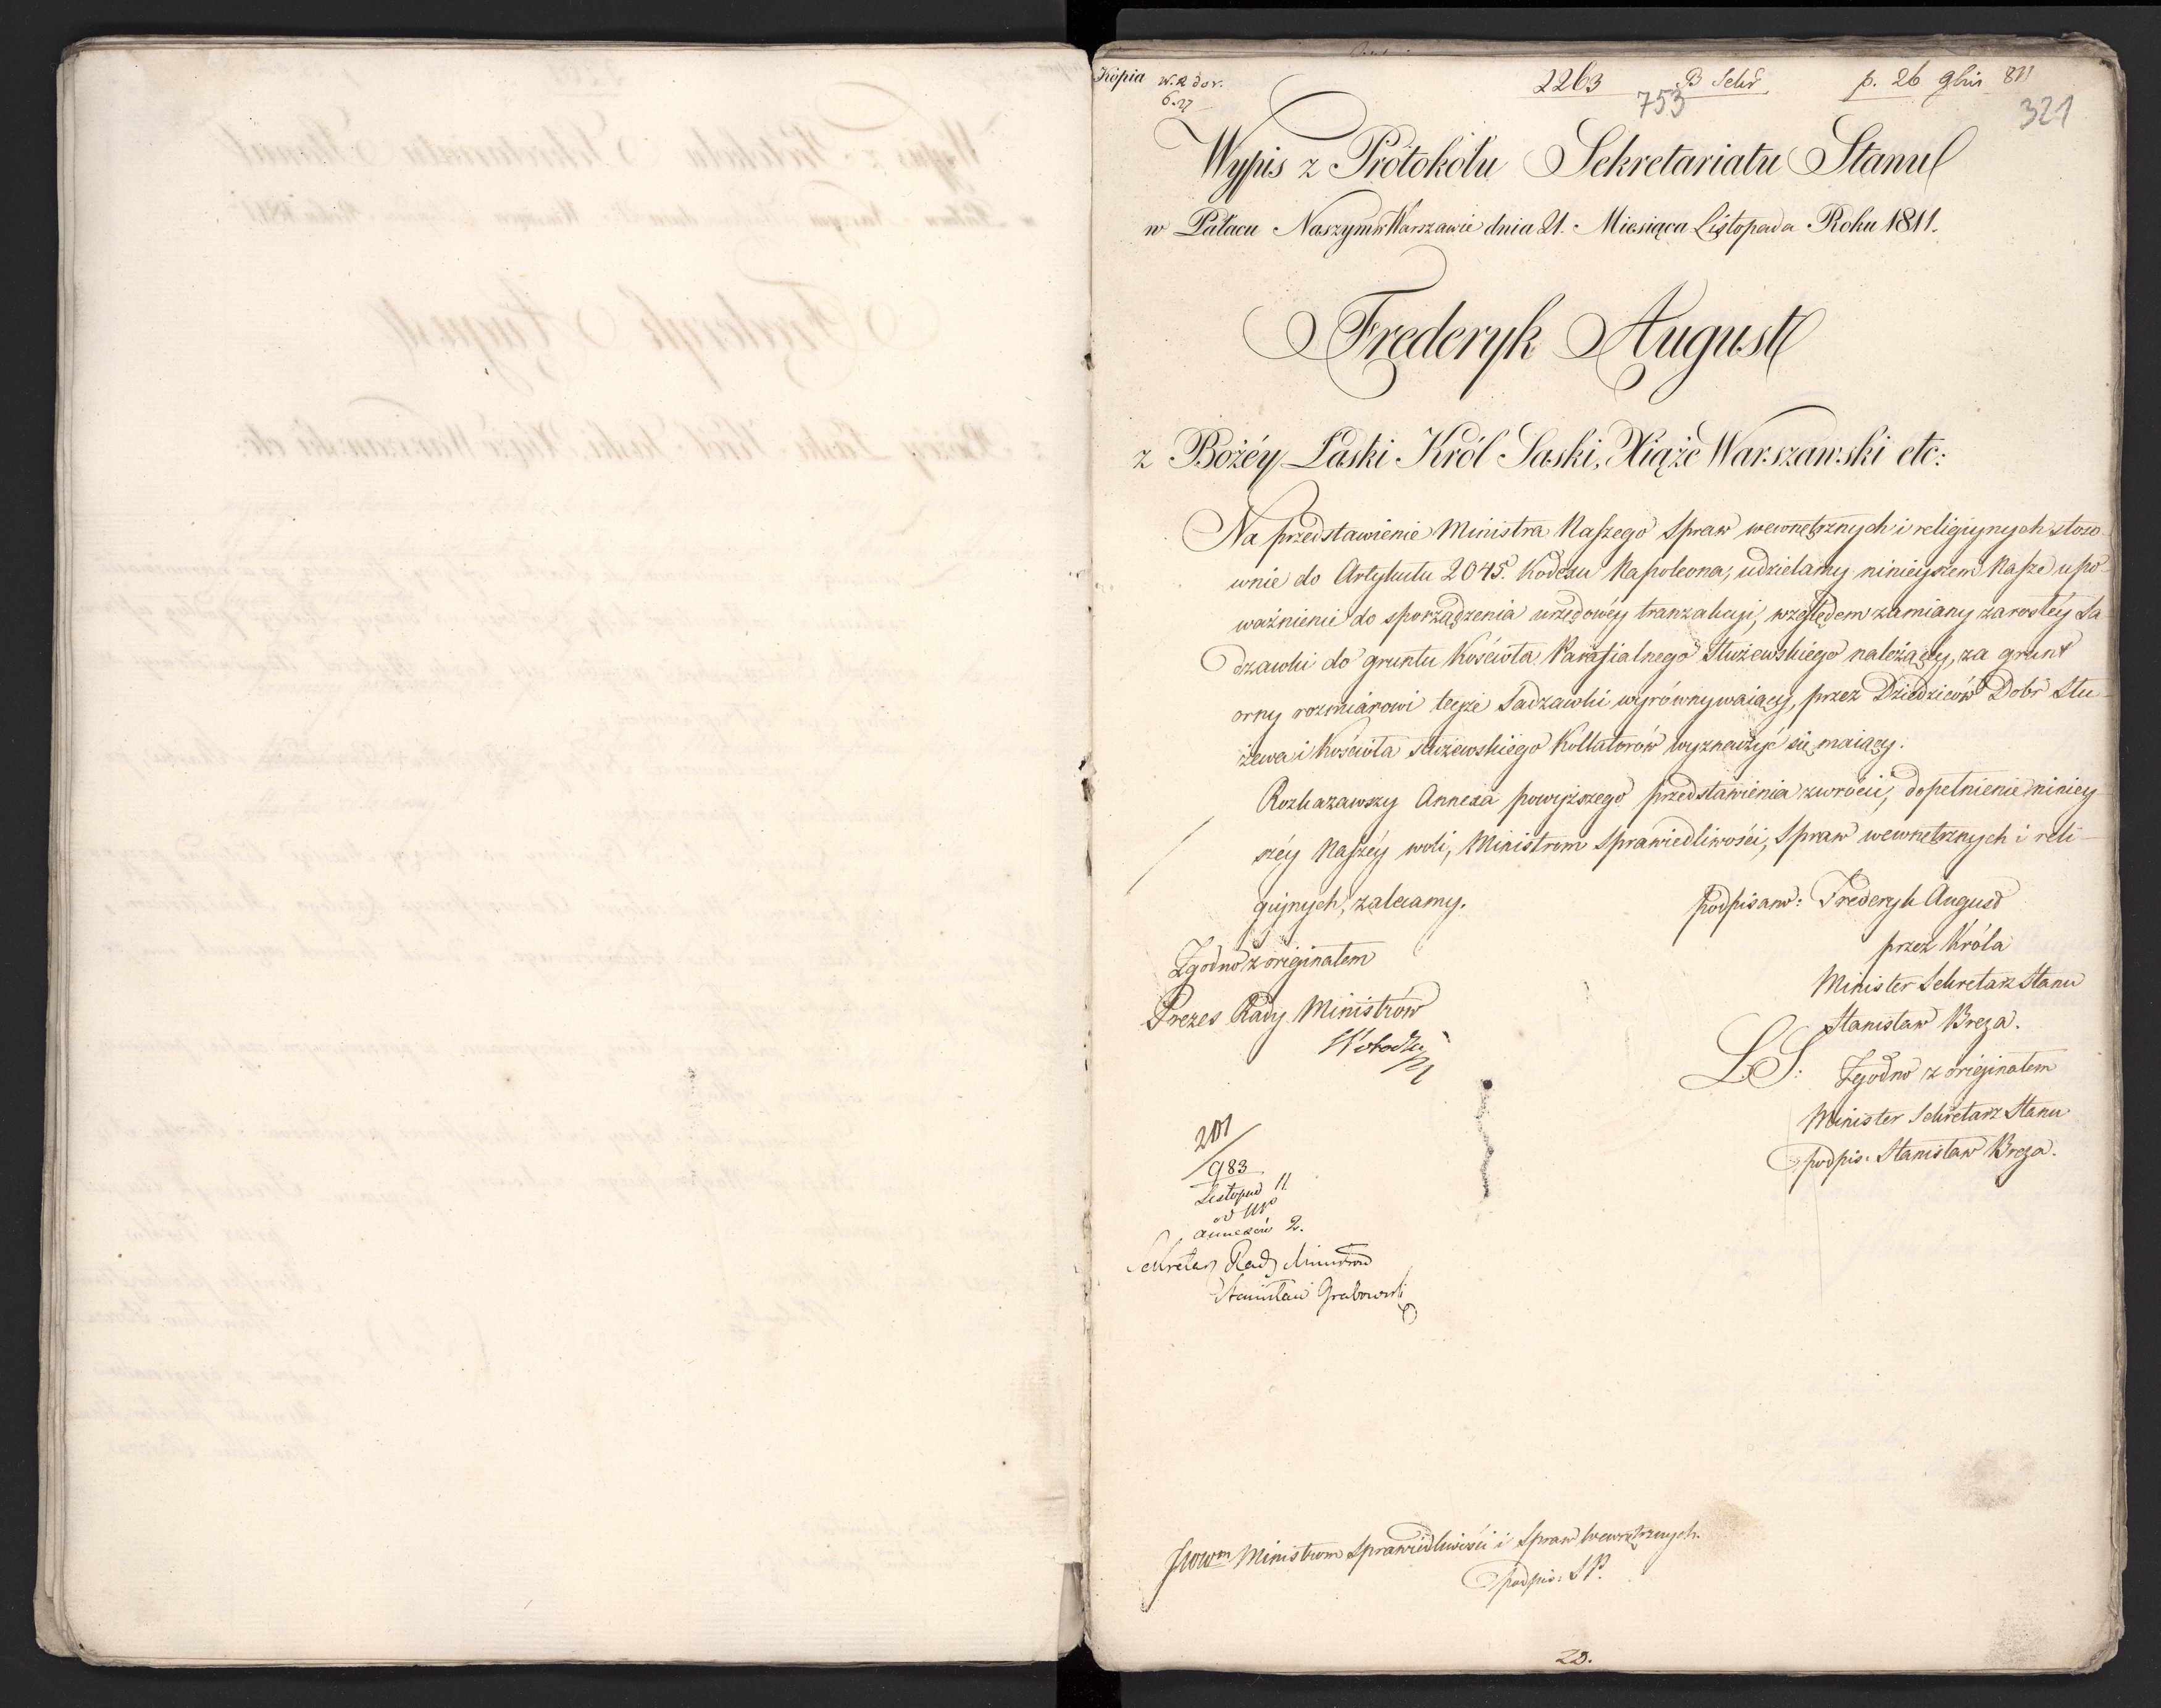 Kopia
2263
753
p. 26 9bris 811
321
Wypis z Protokółu Sekretariatu Stanu
w Pałacu Naszym w Warszawie dnia 21. Miesiąca Listopada Roku 1811.
Frederyk August
z Bożéy Łaski Król Saski, Xiąże Warszawski etc:
Na przedstawienie Ministra Naszego Spraw wewnętrznych i religiynych stoso-
wnie do Artykułu 2045. Kodexu Napoleona, udzielamy ninieyszem Nasze upo-
ważnienie do sporządzenia urzędowéy tranzakcyi, względem zamiany zarosłéy Sa-
dzawki do gruntu Kościoła Parafialnego Służewskiego należącéy, za grunt
orny rozmiarowi teyże Sadzawki wyrównywaiący, przez Dziedziców Dóbr Słu-
żewa i Kościoła Służewskiego Kollatorów wyznaczyć się maiący.
Rozkazawszy Annexa powyższego przedstawienia zwrócić, dopełnienie niniey-
széy Naszéy woli, Ministrom Sprawiedliwości, Spraw wewnętrznych i reli-
giynych, zalecamy.
podpisano: Frederyk August
przez Króla
Minister Sekretarz Stanu
Stanisław Breza.
L.S: Zgodno z originałem
Minister Sekretarz Stanu
podpis: Stanisław Breza.
Zgodno z originałem
Prezes Rady Ministrów
201
983
Listopad 11
annexów 2.
Sekretarz Rady Ministrów
Stanisław Grabowski
Ministrom Sprawiedliwości i Spraw Wewnętrznych.
podpis: S.B.